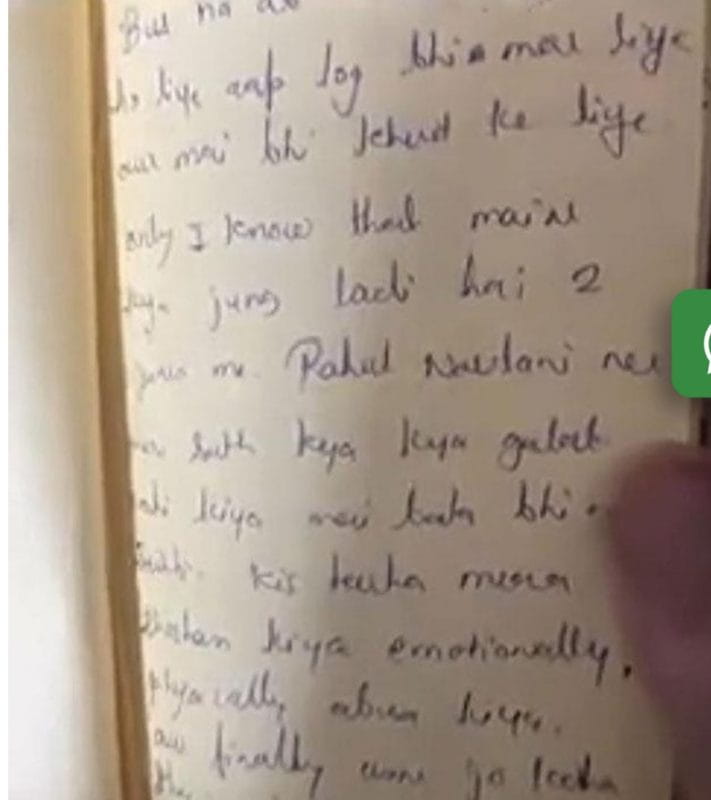 But no
liye aap log bhi mere liye
aur mai bhi khud ke liye
only I know that maine
kya jung ladi hai 2
years me. Rahul Navlani ne
sath kya kya galat
nahi kiya mai bata bhi
sakti. kis tarha mera
kiya emotionally,
physically abuse kiya.
aur finally usne jo kaha